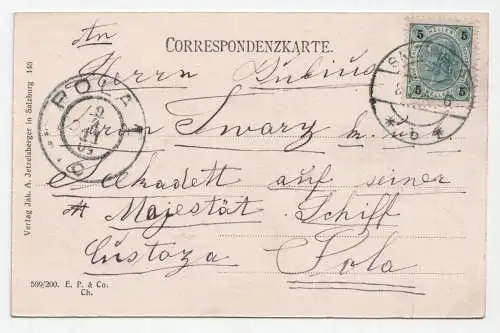 An
CORRESPONDENZKARTE.
Herrn
von Swarz k. u. k.
Seekadett auf seiner
Majestät Schiff
Custoza Pola
POLA 1
5 5
5 5
b
Verlag Jak. A. Jetzelsberger in Salzburg 148
599/200. E. P. & Co.
Ch.